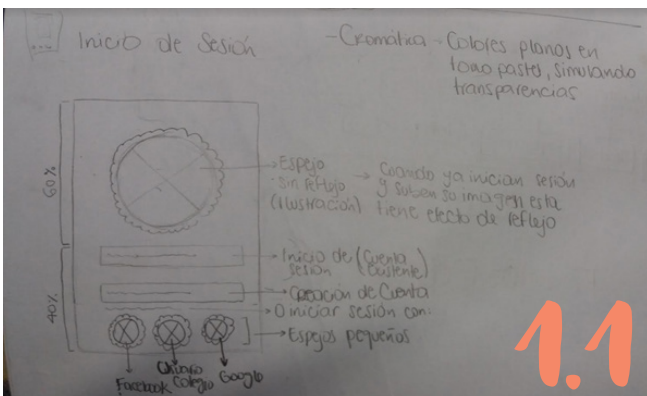 Inicio de Sesión
- Cromática - Colores planos en
tono pastel, simulando
transparencias
60%
Espejo
sin reflejo
(Ilustración)
Cuando ya inician sesión
y suben su imagen esta
tiene efecto de reflejo
40%
Inicio de (Cuenta
sesión existente)
Creación de Cuenta
O iniciar sesión con:
Espejos pequeños
Facebook
Colegio
Google
1.1